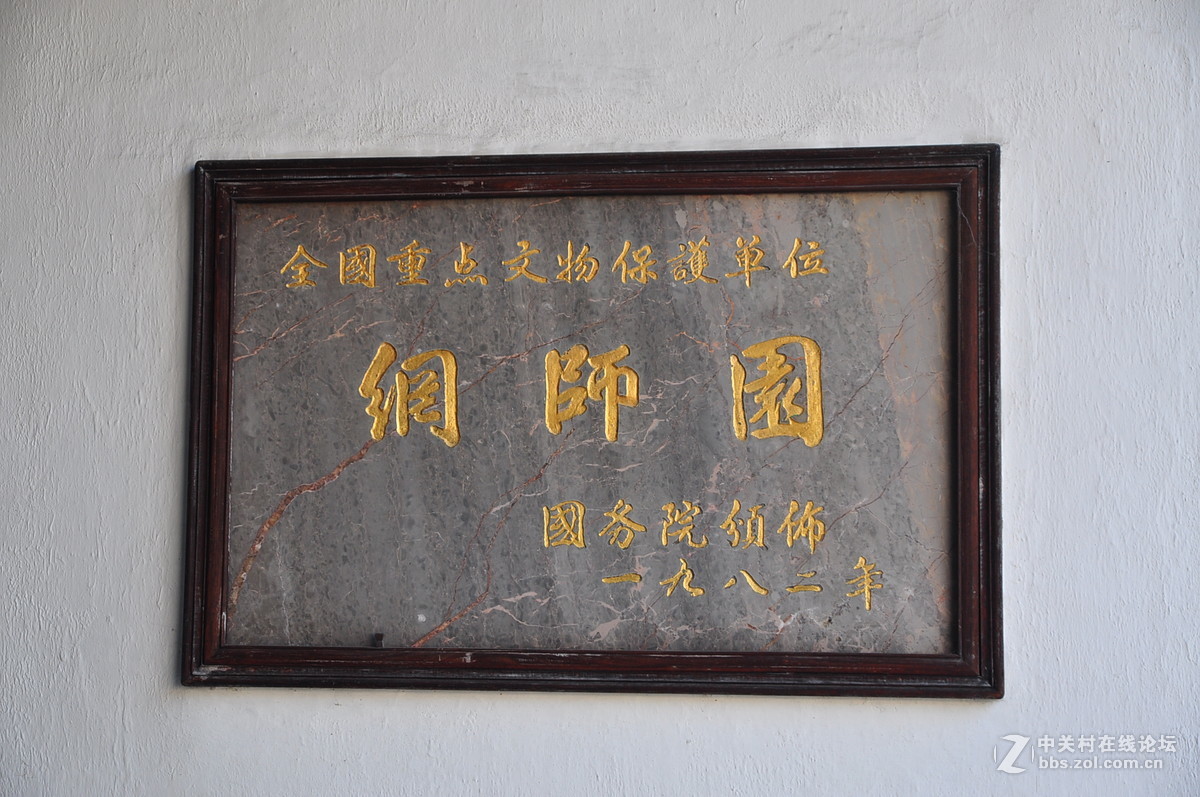 全國重点文物保護单位
網師园
國务院頒佈
一九八二年
中关村在线论坛
bbs.zol.com.cn